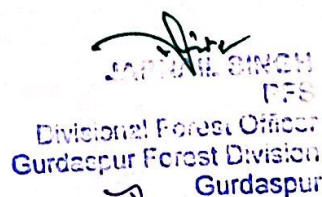 SINGH
PFS
Divisional Forest Officer
Gurdaspur Forest Division
Gurdaspur